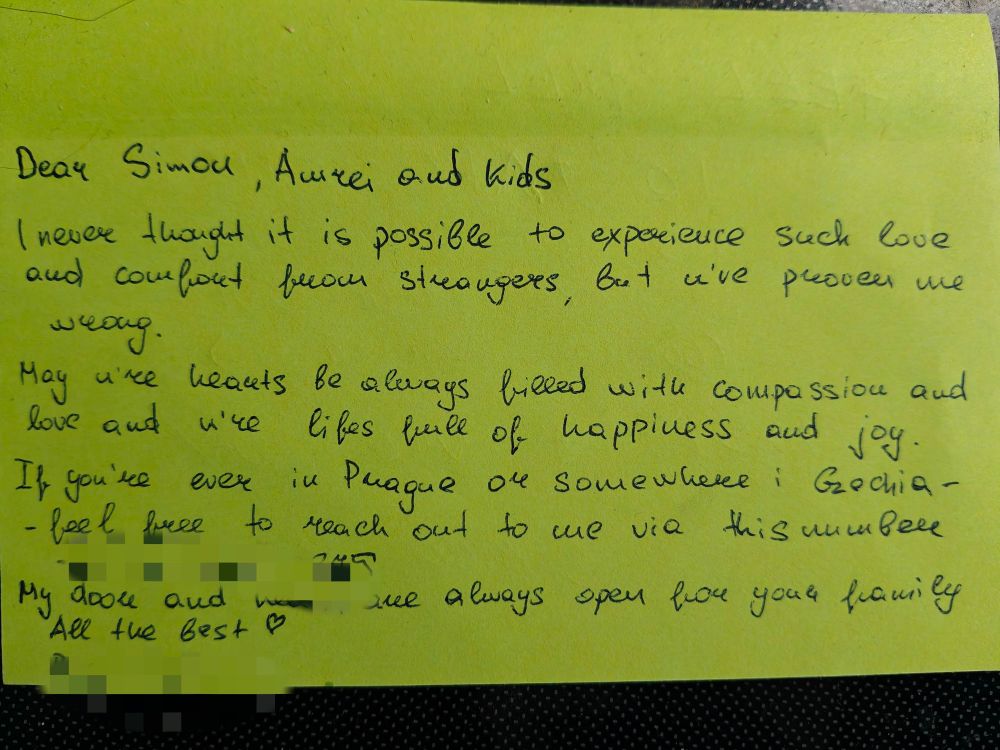 Dear Simon, Amrei and Kids
I never thought it is possible to experience such love
and comfort from strangers, but u've proven me
wrong.
May u're hearts be always filled with compassion and
love and u're lifes full of happiness and joy.
If you're ever in Prague or somewhere i Czechia -
- feel free to reach out to me via this number
My door and are always open for your family
All the best ♡